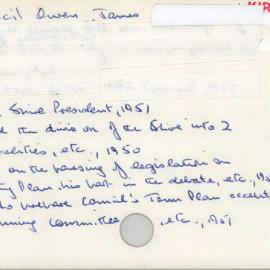 cil Owen James
KIR
Shire President, 1951
the division of the Shire into 2
alities, etc., 1950
on the passing of legislation on
Plan, his part in the debate, etc.,
welfare Council's Town Plan
committee etc., 1951